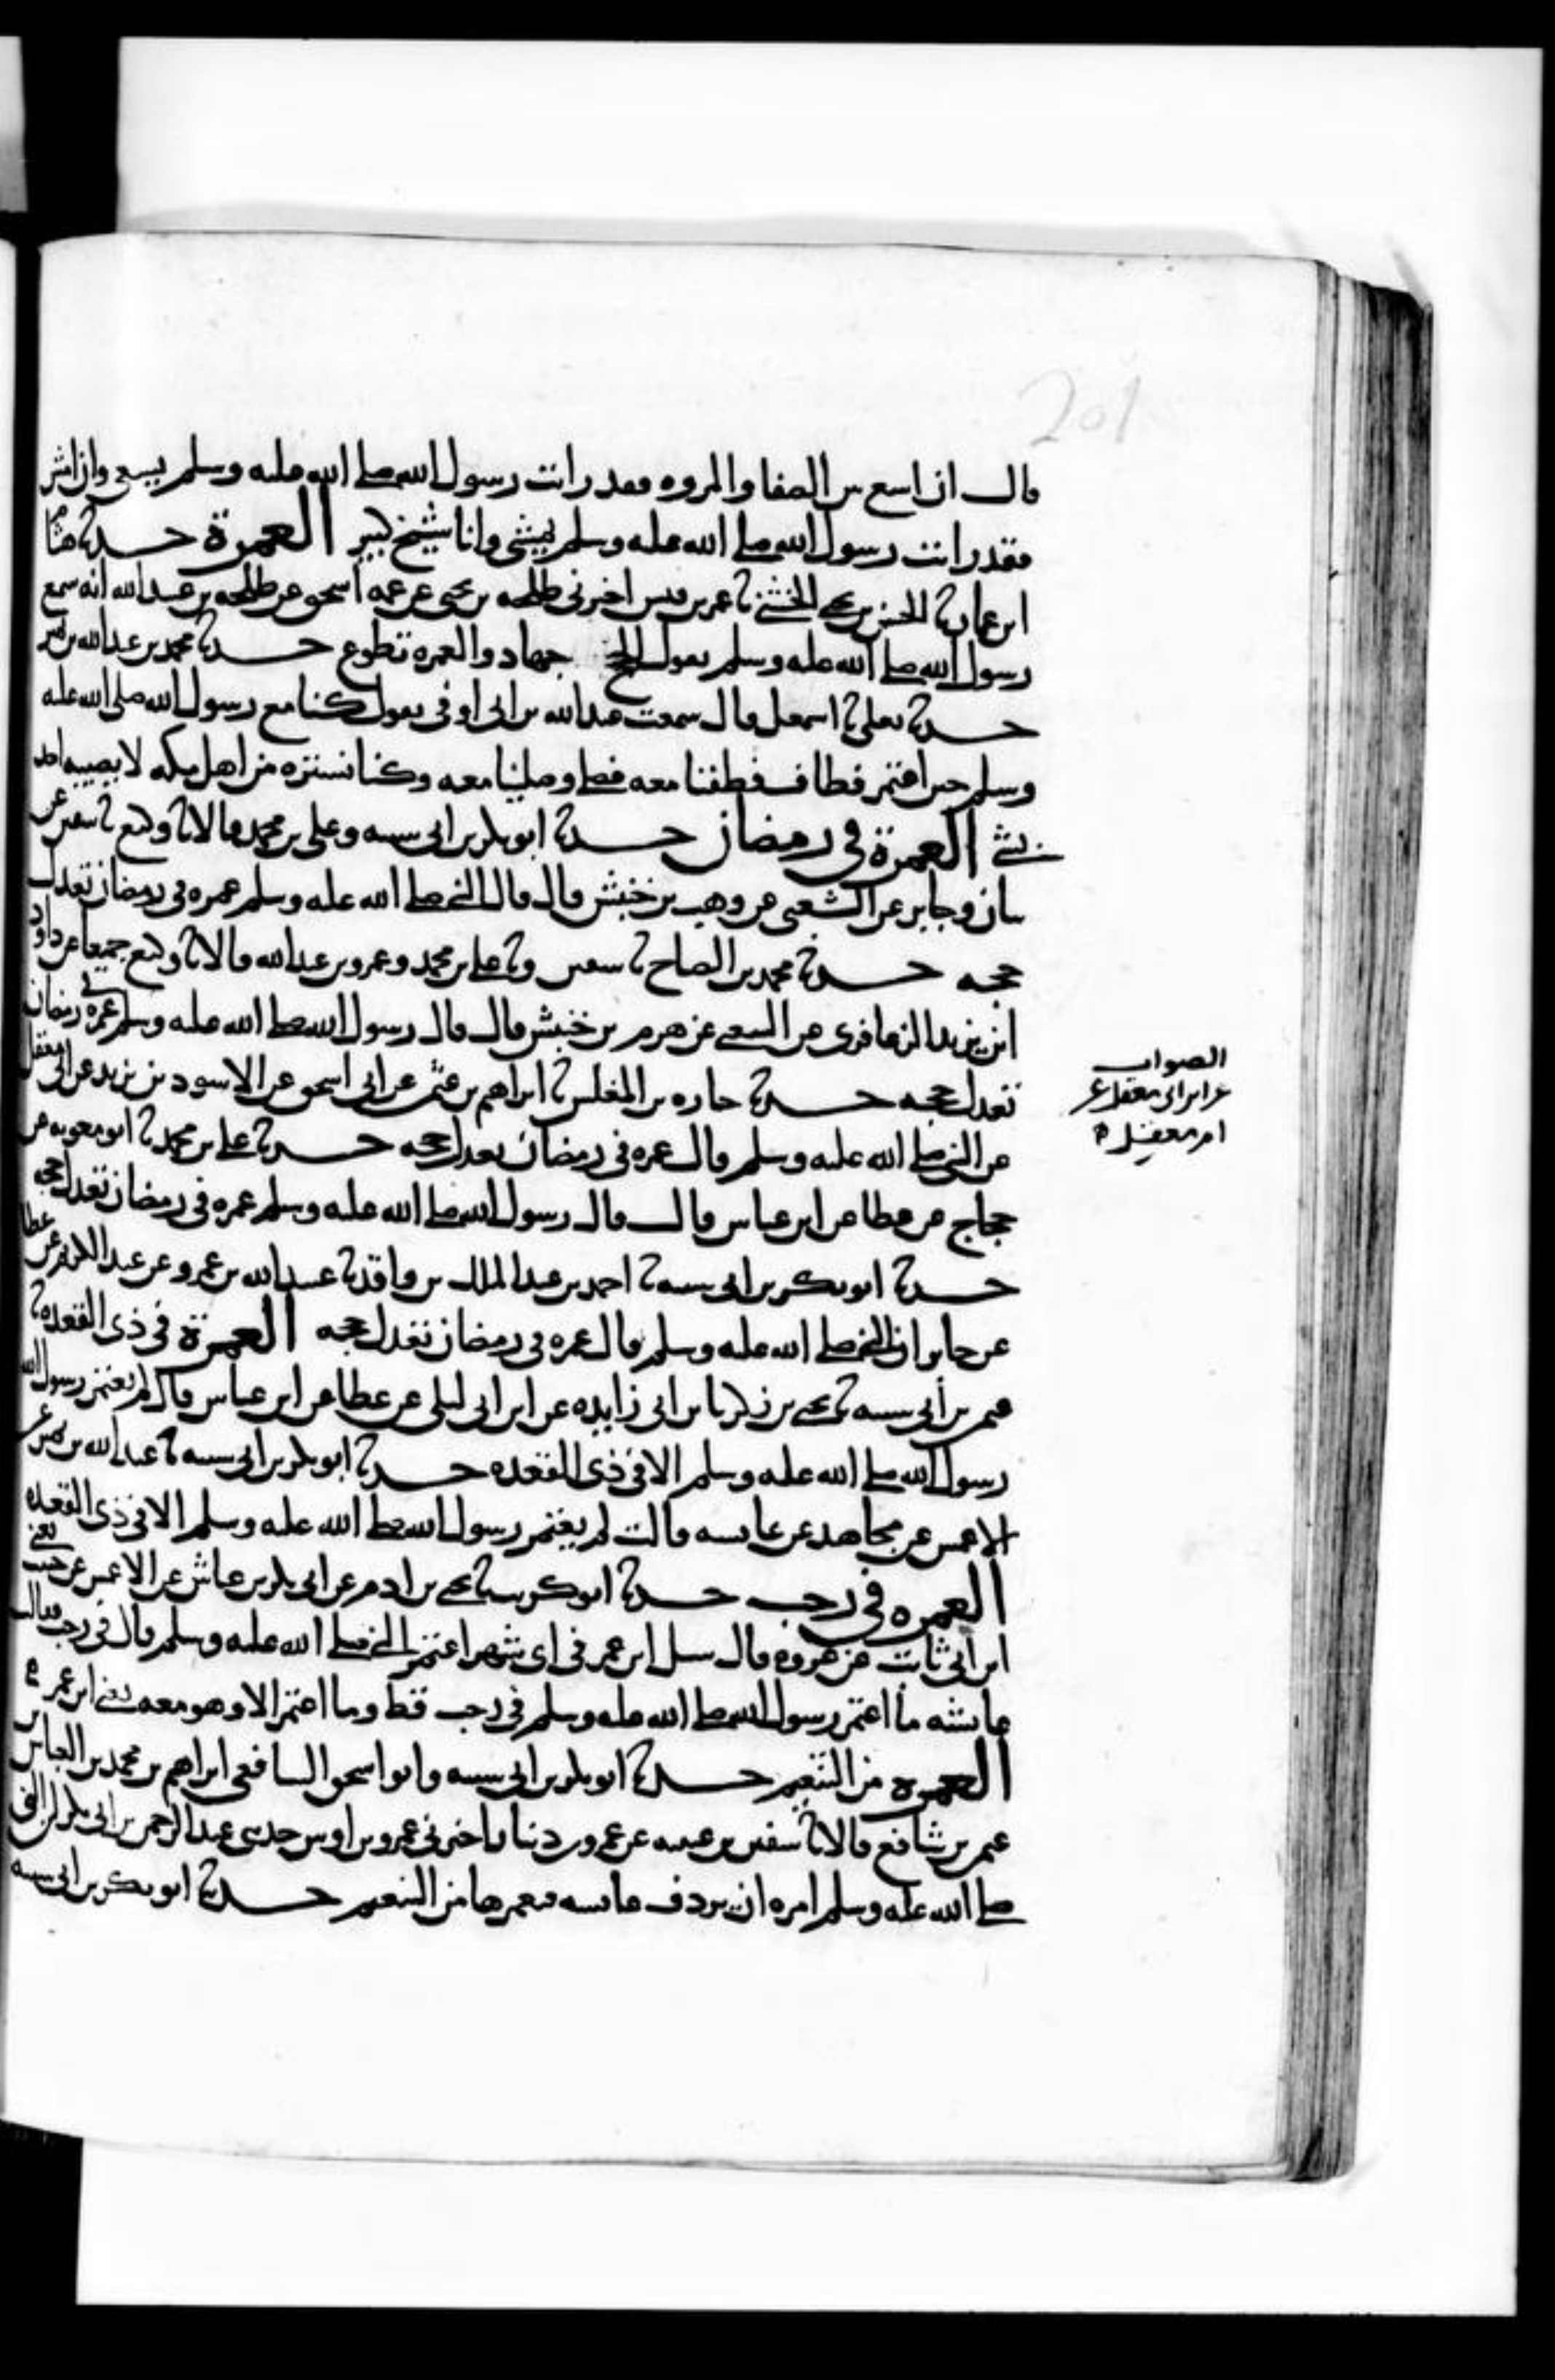 201
قال ان اسع بين الصفا والمروه فقد رايت رسول الله صلى الله عليه وسلم يسعى وان امش
فقد رايت رسول الله صلى الله عليه وسلم يمشي وانا شيخ كبير العمرة حدثنا هشام
ابن عمار ثنا الحسن بن يحيى الخشني ثنا عمر بن قيس اخبرني طلحه بن يحيى عن عمه اسحق عن طلحه بن عبيد الله انه سمع
رسول الله صلى الله عليه وسلم يقول الحج جهاد والعمره تطوع حدثنا محمد بن عبد الله بن نمير
حدثنا يعلى ثنا اسمعيل قال سمعت عبد الله بن ابي اوفى يقول كنا مع رسول الله صلى الله عليه
وسلم حين اعتمر فطاف فطفنا معه فصلى وصلينا معه وكنا نستره من اهل مكه لا يصيبه احد
بشي العمرة في رمضان حدثنا ابو بكر بن ابي شيبه وعلي بن محمد قالا ثنا وكيع ثنا سفين عن
بيان وجابر عن الشعبي عن وهب بن خنبش قال قال النبي صلى الله عليه وسلم عمره في رمضان تعدل
حجه حدثنا محمد بن الصباح ثنا سفين وثنا علي بن محمد وعمرو بن عبد الله قالا ثنا وكيع جميعا عن داود
ابن يزيد الزعافري عن الشعبي عن هرم بن خنبش قال قال رسول الله صلى الله عليه وسلم عمره في رمضان
تعدل حجه حدثنا جباره بن المغلس ثنا ابراهيم بن عثمن عن ابي اسحق عن الاسود بن يزيد عن ابي معقل
عن النبي صلى الله عليه وسلم قال عمره في رمضان تعدل حجه حدثنا علي بن محمد ثنا ابو معويه عن
حجاج عن عطا عن ابن عباس قال قال رسول الله صلى الله عليه وسلم عمره في رمضان تعدل حجه
حدثنا ابو بكر بن ابي شيبه ثنا احمد بن عبد الملك بن واقد ثنا عبيد الله بن عمرو عن عبد الكريم عن عطا
عن جابر ان النبي صلى الله عليه وسلم قال عمره في رمضان تعدل حجه العمرة في ذي القعده ثنا
عثمن بن ابي شيبه ثنا يحيى بن زكريا بن ابي زايده عن ابن ابي ليلى عن عطا عن ابن عباس قال لم يعتمر رسول الله
رسول الله صلى الله عليه وسلم الا في ذي القعده حدثنا ابو بكر بن ابي شيبه ثنا عبد الله بن نمير عن
الاعمش عن مجاهد عن عايشه قالت لم يعتمر رسول الله صلى الله عليه وسلم الا في ذي القعده
العمره في رجب حدثنا ابو كريب ثنا يحيى بن ادم عن ابي بكر بن عياش عن الاعمش عن حبيب يعني
ابن ابي ثابت عن عروه قال سيل ابن عمر في اي شهر اعتمر النبي صلى الله عليه وسلم قال في رجب فقالت
عايشه ما اعتمر رسول الله صلى الله عليه وسلم في رجب قط وما اعتمر الا وهو معه يعني ابن عمر
العمره من التنعيم حدثنا ابو بكر بن ابي شيبه وابو اسحق الشافعي ابراهيم بن محمد بن العباس بن
عثمن بن شافع قالا ثنا سفين بن عيينه عن عمرو بن دينار اخبرني عمرو بن اوس حدثني عبد الرحمن بن ابي بكر ان النبي
صلى الله عليه وسلم امره ان يردف عايشه فيعمرها من التنعيم حدثنا ابو بكر بن ابي شيبه
الصواب
عن ابن ابي معقل عن
ام معقل